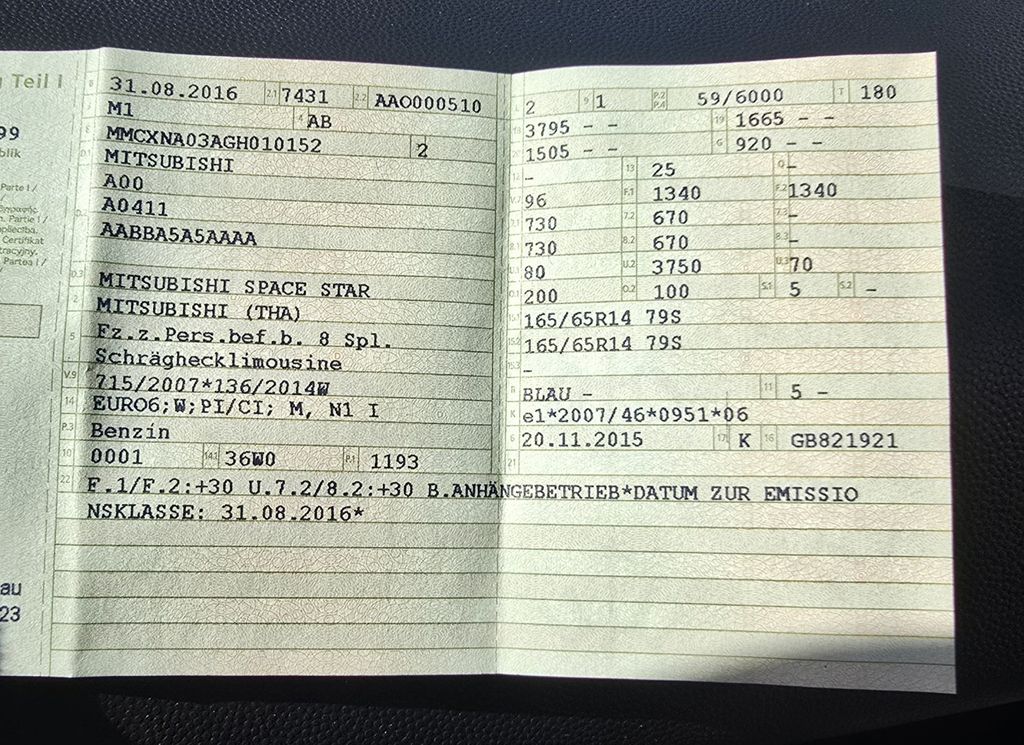 Teil I
B 31.08.2016 2.1 7431 2.2 AAO000510
J M1 4 AB
E MMCXNA03AGH010152 2
D.1 MITSUBISHI
A00
A0411
AABBA5A5AAAA
D.3 MITSUBISHI SPACE STAR
2 MITSUBISHI (THA)
5 Fz.z.Pers.bef.b. 8 Spl.
Schräghecklimousine
V.9 715/2007*136/2014W
14 EURO6;W;PI/CI; M, N1 I
P.3 Benzin
10 0001 14.1 36W0 P.1 1193
22 F.1/F.2:+30 U.7.2/8.2:+30 B.ANHÄNGEBETRIEB*DATUM ZUR EMISSIO
NSKLASSE: 31.08.2016*
L 2 9 1 P.2 P.4 59/6000 T 180
3795 - - 19 1665 - -
1505 - - G 920 - -
- 13 25 -
96 F.1 1340 F.2 1340
730 7.2 670 7.3 -
730 8.2 670 8.3 -
80 U.2 3750 U.3 70
200 O.2 100 S.1 5 S.2 -
165/65R14 79S
165/65R14 79S
-
R BLAU - 11 5 -
K e1*2007/46*0951*06
6 20.11.2015 17 K 16 GB821921
21
99
blik
Parte I /
Partie I /
Certifikat
Partea I /
au
23